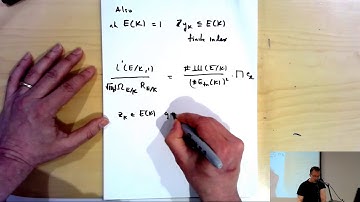 Also
rk E(K) = 1 ℤy_K ⊆ E(K)
finite index
L'(E/K,1) / √|D_K| Ω_E/K R_E/K = # Ш(E/K) / (# E_tor(K))² · ∏ c_v
z_K ∈ E(K)